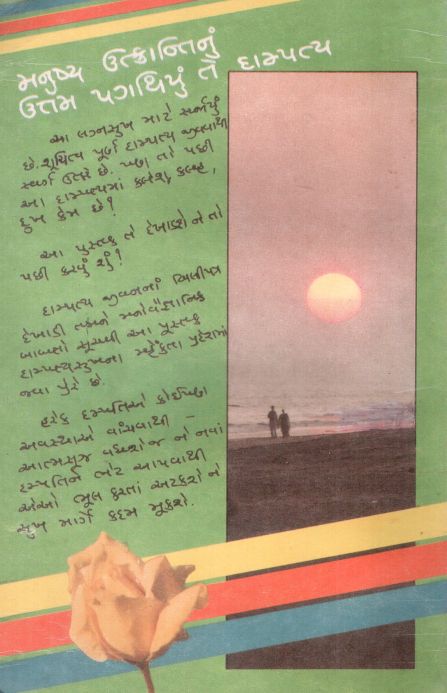 મનુષ્ય ઉત્ક્રાન્તિનું
ઉત્તમ પગથિયું તે દામ્પત્ય
આ લગ્નસુખ માટે સર્જાયું
છે. શુચિત્વ પૂર્ણ દામ્પત્ય જીવવાથી
સ્વર્ગ ઉતરે છે. પણ તો પછી
આ દામ્પત્યમાં કલેશ, કલહ,
દુખ કેમ છે?
આ પુસ્તક તે દેખાડશે ને તો
પછી કરવું શું?
દામ્પત્ય જીવનનાં
દેખાડી તમને મનોવૈજ્ઞાનિક
બાબતો સૂચવી આ પુસ્તક
દામ્પત્યસુખના મહેંકતા પ્રદેશમાં
જવા પ્રેરે છે.
હરેક દમ્પતિએ કોઈપણ
અવસ્થાએ વાંચવાથી –
આત્મસૂજ વધશે જ ને નવાં
દમ્પતિને ભેટ આપવાથી
એઓ ભૂલ કરતાં અટકશે ને
સુખ માર્ગે કદમ મૂકશે.